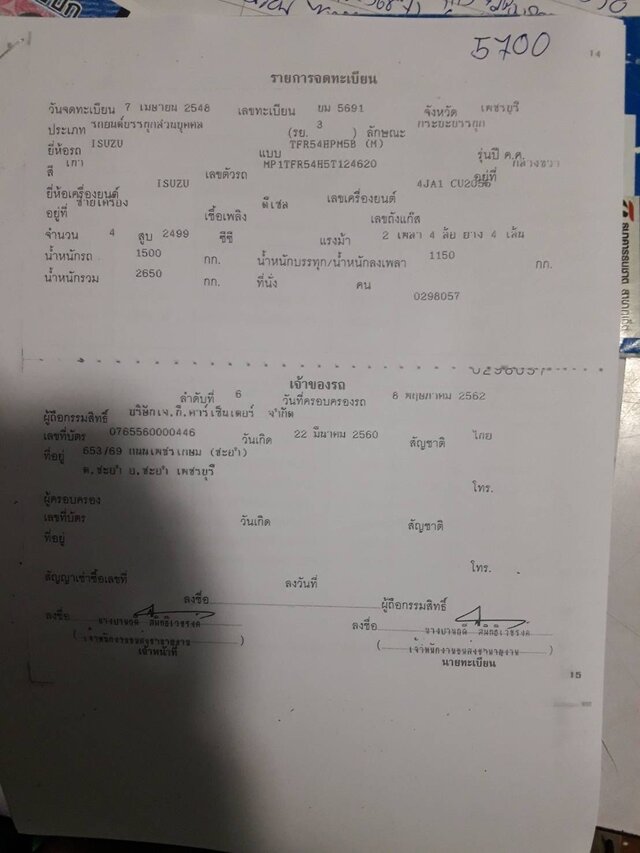 5700
14
รายการจดทะเบียน
วันจดทะเบียน 7 เมษายน 2548 เลขทะเบียน ยม 5691 จังหวัด เพชรบุรี
ประเภท รถยนต์บรรทุกส่วนบุคคล (รย. 3 ) ลักษณะ กระบะบรรทุก
ยี่ห้อรถ ISUZU แบบ TFR54HPM5B (M) รุ่นปี ค.ศ.
สี เทา เลขตัวรถ MP1TFR54H5T124620 อยู่ที่ กลางขวา
ยี่ห้อเครื่องยนต์ ISUZU เลขเครื่องยนต์ 4JA1 CU2056
อยู่ที่ ซ้ายเครื่อง เชื้อเพลิง ดีเซล เลขถังแก๊ส
จำนวน 4 สูบ 2499 ซีซี แรงม้า 2 เพลา 4 ล้อ ยาง 4 เส้น
น้ำหนักรถ 1500 กก. น้ำหนักบรรทุก/น้ำหนักลงเพลา 1150 กก.
น้ำหนักรวม 2650 กก. ที่นั่ง คน
0298057
เจ้าของรถ
ลำดับที่ 6 วันที่ครอบครองรถ 8 พฤษภาคม 2562
ผู้ถือกรรมสิทธิ์ บริษัทเจ.ที.คาร์เซ็นเตอร์ จำกัด
เลขที่บัตร 0765560000446 วันเกิด 22 มีนาคม 2560 สัญชาติ ไทย
ที่อยู่ 653/69 ถนนเพชรเกษม (ชะอำ)
ต.ชะอำ อ.ชะอำ เพชรบุรี
โทร.
ผู้ครอบครอง
เลขที่บัตร วันเกิด สัญชาติ
ที่อยู่
โทร.
สัญญาเช่าซื้อเลขที่ ลงวันที่
ลงชื่อ ผู้ถือกรรมสิทธิ์
ลงชื่อ ลงชื่อ
( เจ้าพนักงานขนส่งชำนาญงาน ) ( เจ้าพนักงานขนส่งชำนาญงาน )
เจ้าหน้าที่ นายทะเบียน
15